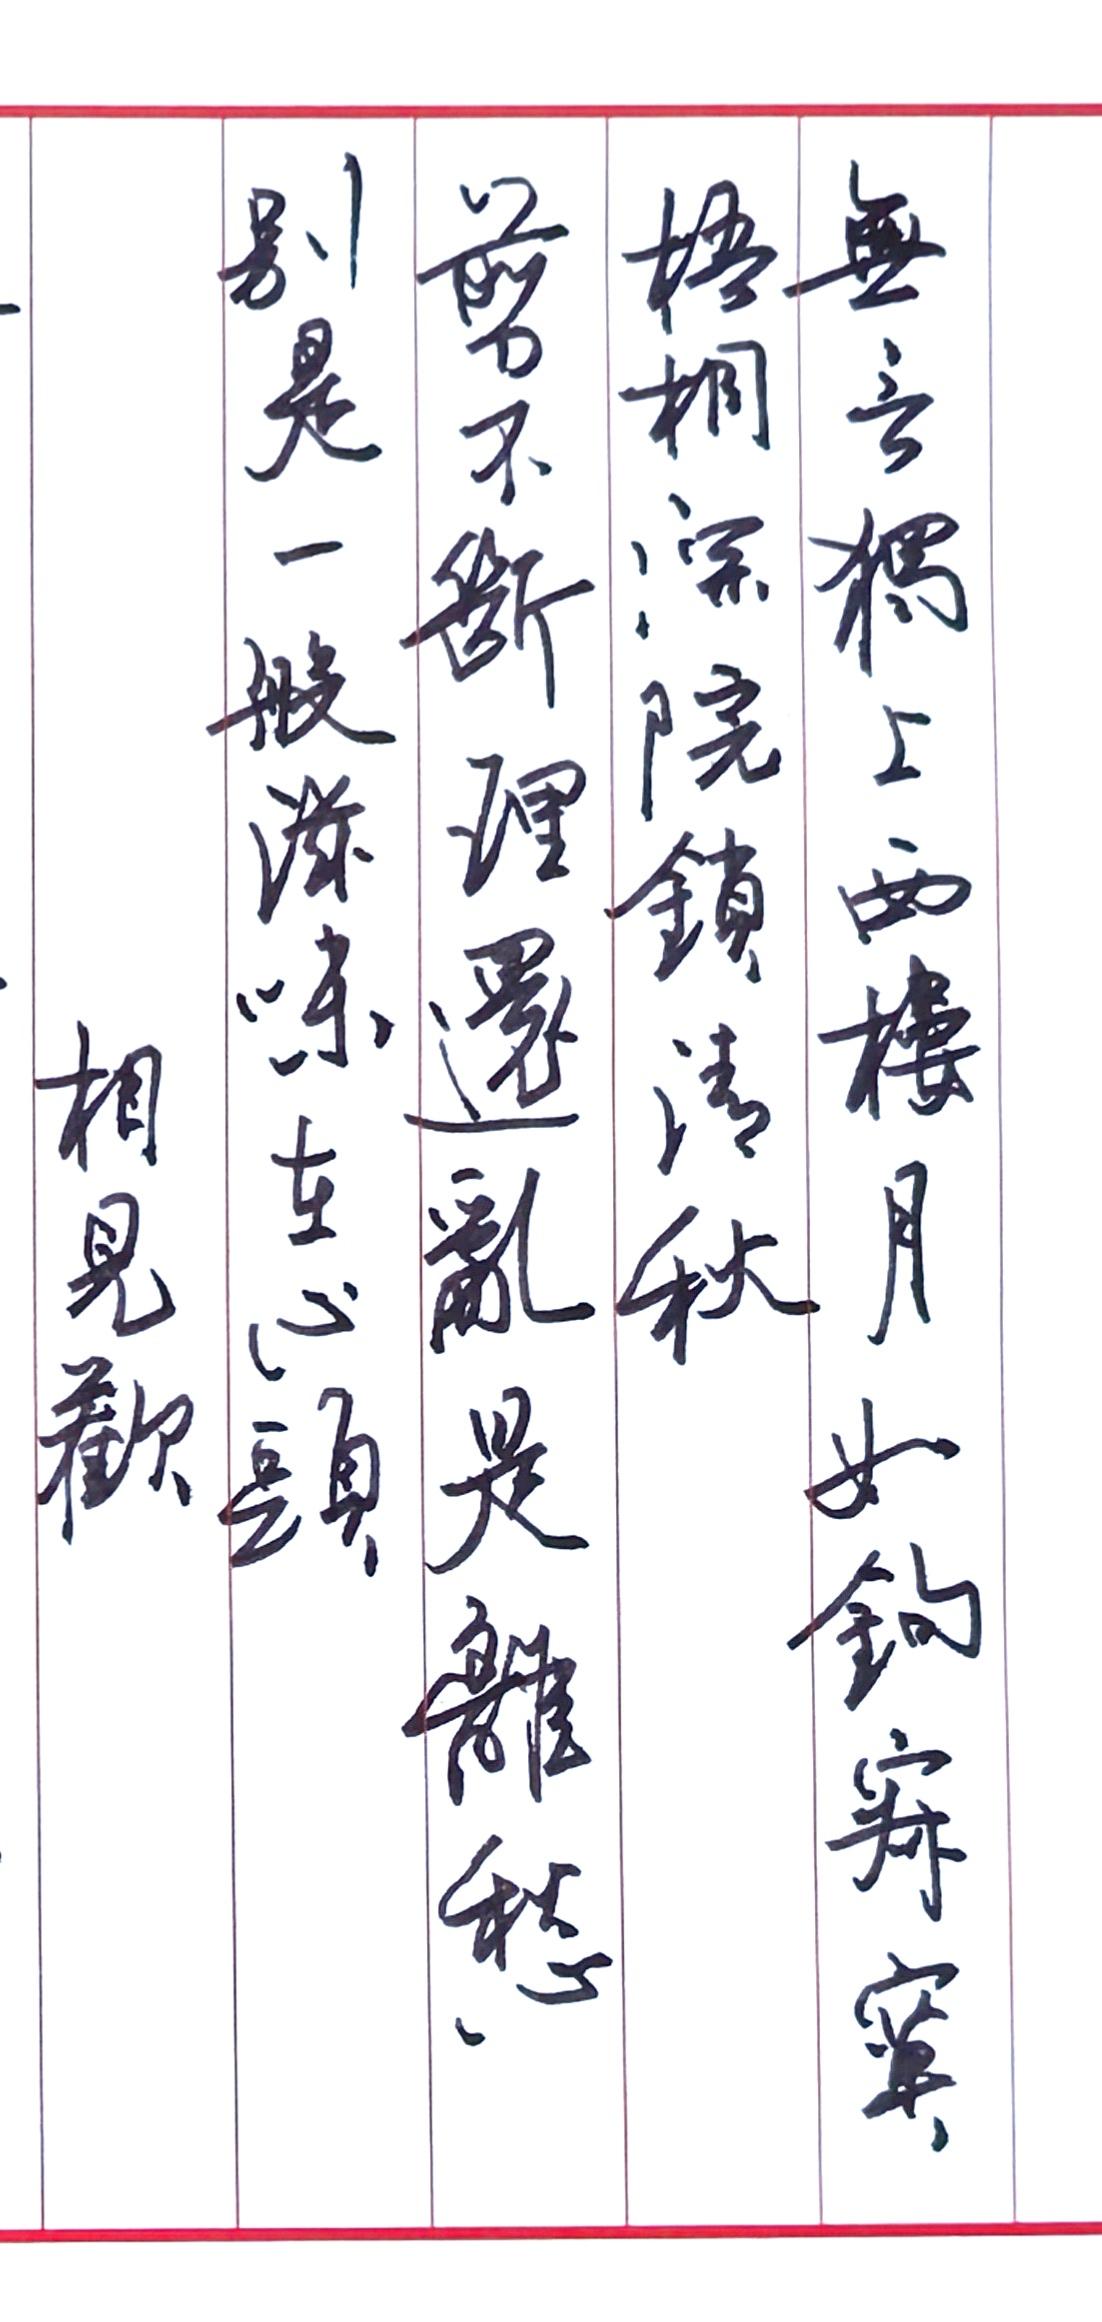 無言獨上西樓月如鉤寂寞
梧桐深院鎖清秋
剪不斷理還亂是離愁
別是一般滋味在心頭
相見歡